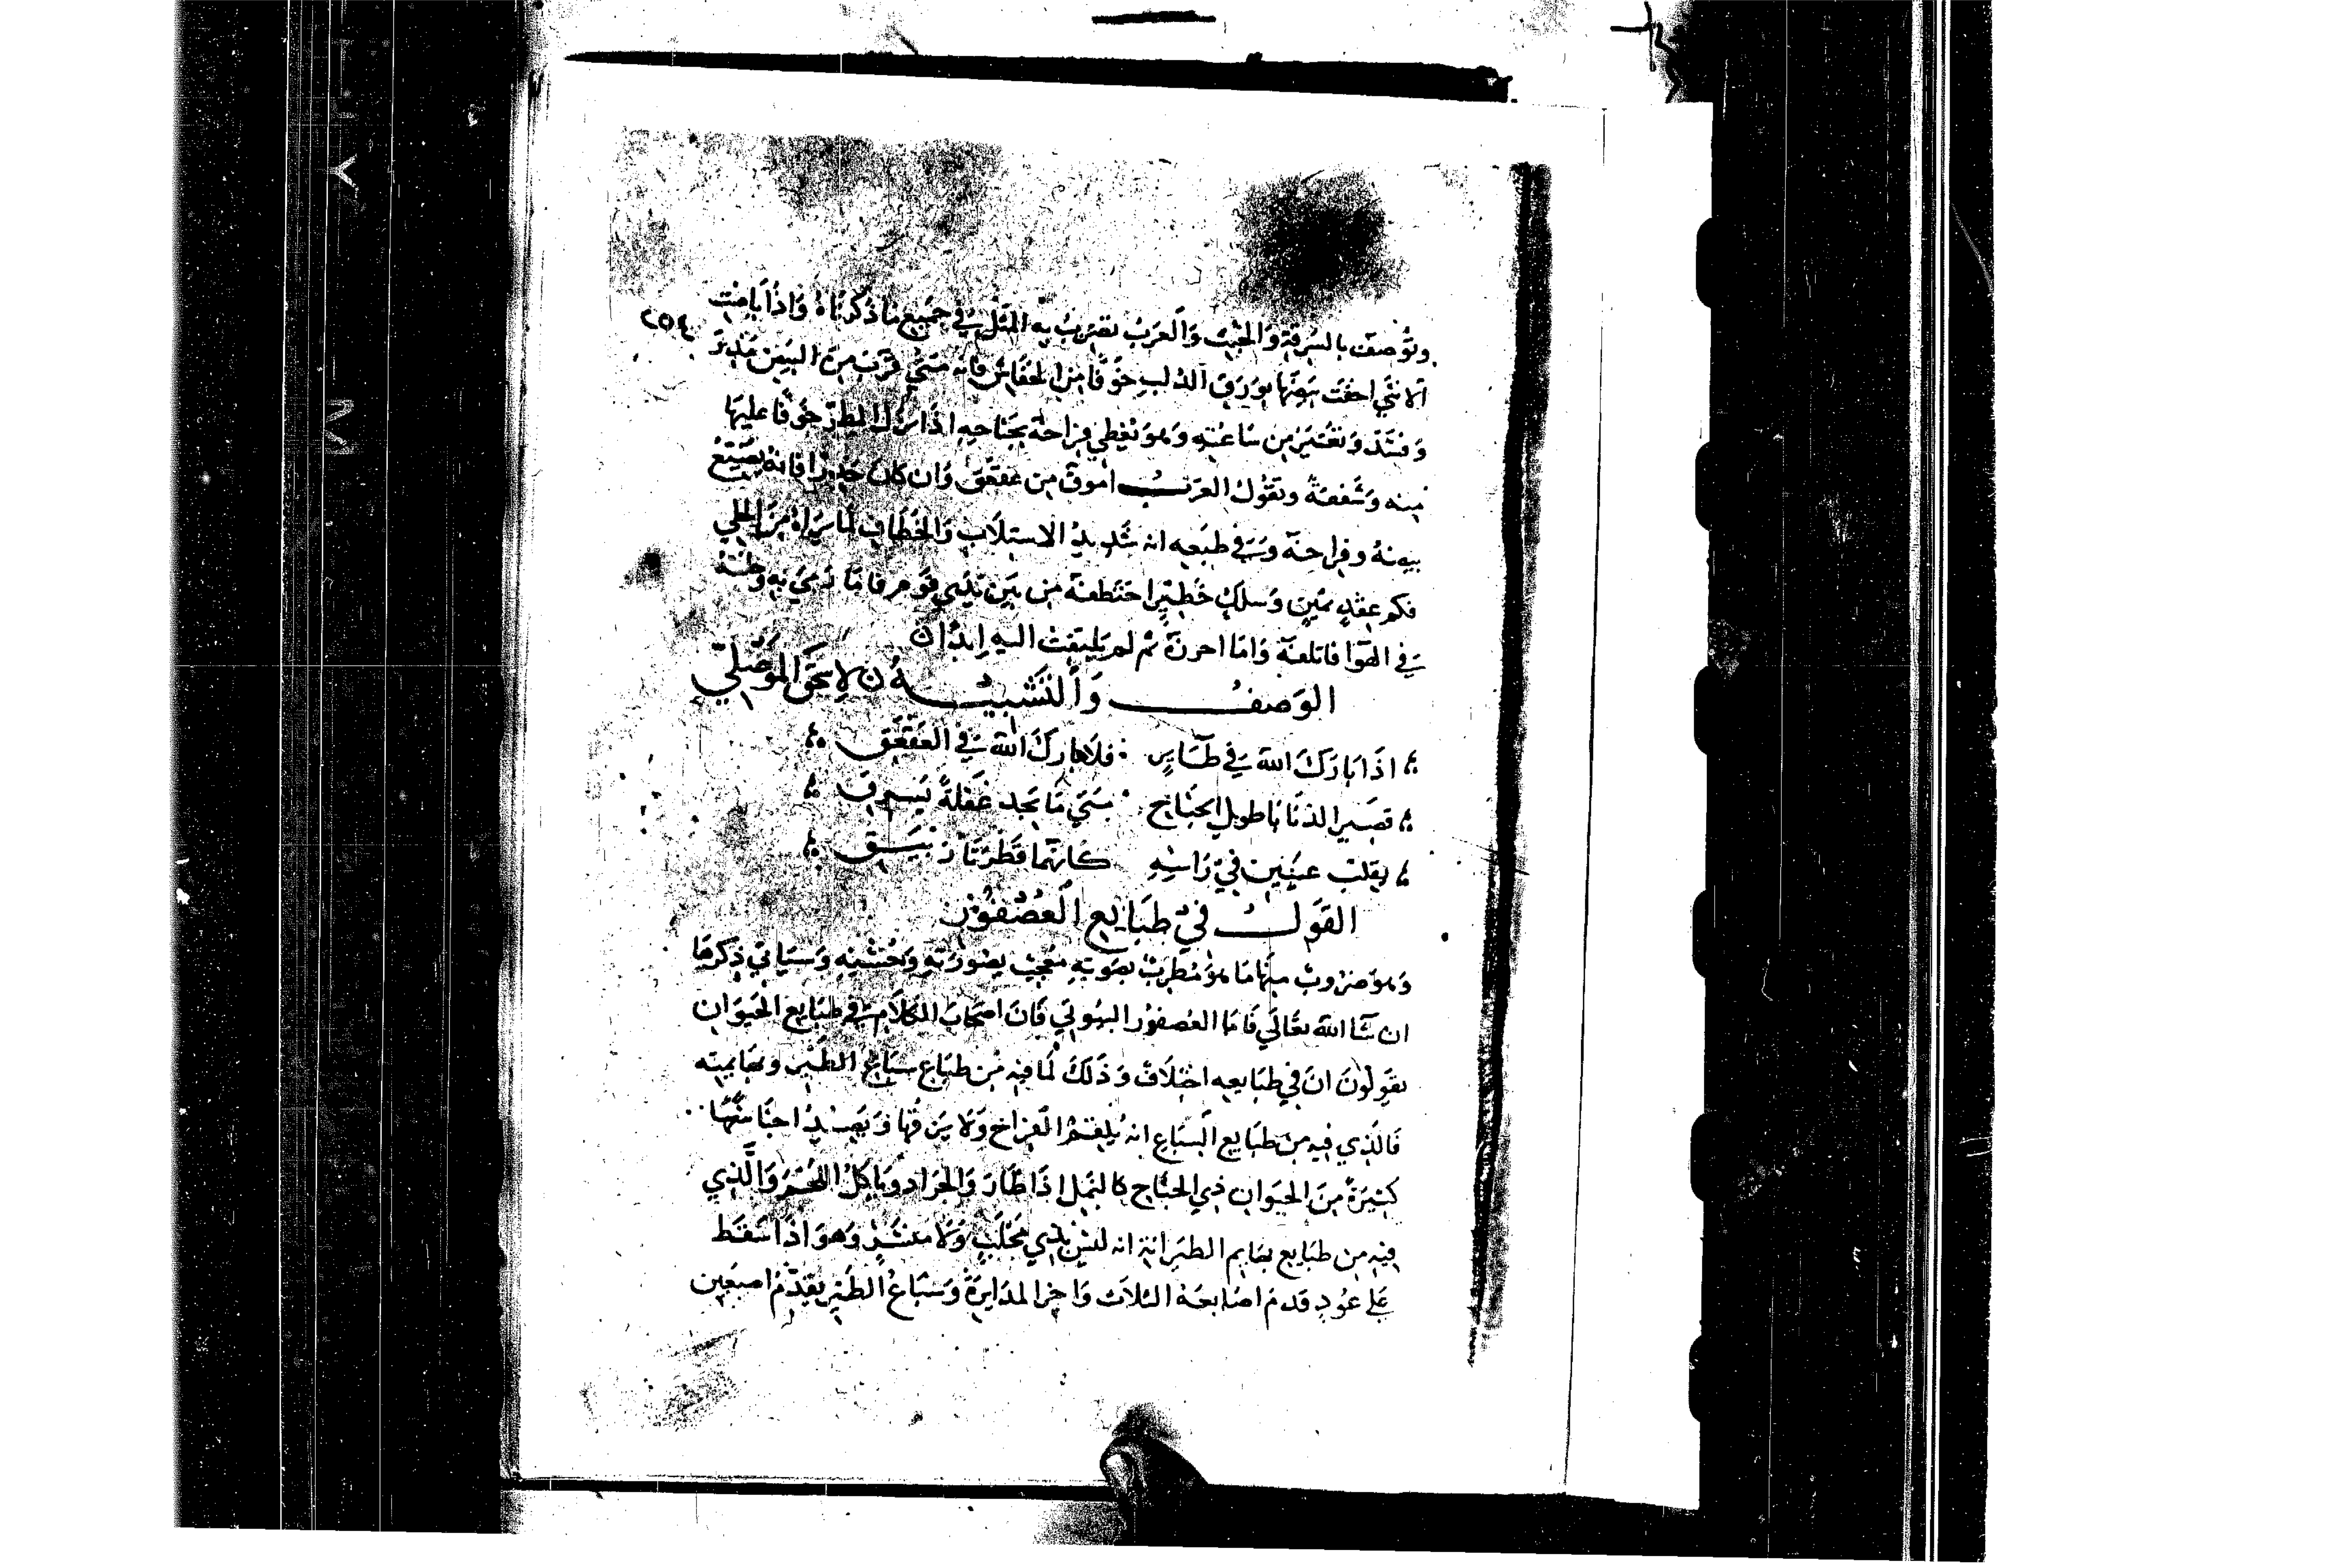 وتُوصف بالسَرقةِ وَالخبث وَالعَرَب تضرب به المَثل في جَميع مَا ذكَرناهُ وَاذَا بَاضت
٢٥٤
الانثَى اخفت بَيضها بوَرَق الدلب خَوفًا مِن الخفّاش فانه مَتَى قرب من البَيض مَذِرَ
وَفسَدَ وَتغَيّر من سَاعتهِ وَهوَ يغطي فراخهُ بجَناحيهِ اذَا نزل المطر خَوفًا عليهَا
منه وَشفقة وتقول العرَب اموق من عقعق وَان كان حذرا فانه يضيّعُ
بيضهُ وفراخهُ وَفي طبعهِ انه شَديد الاستلاب وَالخطاف لما يَراهُ منَ الحلي
فكم عِقدٍ ثمين وَسلك خَطير اختطفهُ من بَين يَدي قوم فامّا رَمَى به
في الهوَا فاتلفهُ وَامّا احرزهُ ثم لم يَلتفت اليه ابدًا ن
الوَصف وَالتشبيه ن لاسحَق الموصلي
اذَا بَارَكَ الله في طَائرٍ فلا بَارَكَ الله في العَقعَق
قصير الذنَابَا طويل الجناح مَتَى مَا يَجد غَفلةً يَسرق
يقلّب عينَين في رَاسهِ كانهمَا قَطرَتَا زئبَق
القَول في طبَايع العُصفور
وَهوَ ضرُوب منهَا مَا هوَ مُطرب بصَوتهِ مُعجب بصُورَتهِ وَحُسنهِ وَسيَاتي ذِكرهَا
ان شَا الله تعَالى فَامَّا العُصفور البيوتي فَان اصحَاب الكلام في طبَايع الحيوَان
يقولونَ انَ في طبَايعهِ اختلاف وَذَلكَ لمَا فيه من طبَاع سبَاع الطير وبهايمه
فَالذي فيه من طبَايع السبَاع انه يُلقم الفراخ وَلا يَزقّهَا وَيَصيد اجنَاسهَا
كثيرَةً منَ الحيوَان ذي الجنَاح كالنمل اذَا طَارَ وَالجرَاد ويَاكل اللحم وَالذي
فيه من طبَايع بهَايم الطير انه ليسَ بذي مخلَب وَلا منسَر وَهوَ اذَا سَقَط
عَلى عُود قدم اصَابعَهُ الثلاث وَاخر الدَابرَةَ وَسبَاع الطير يقدّم اصبعَين